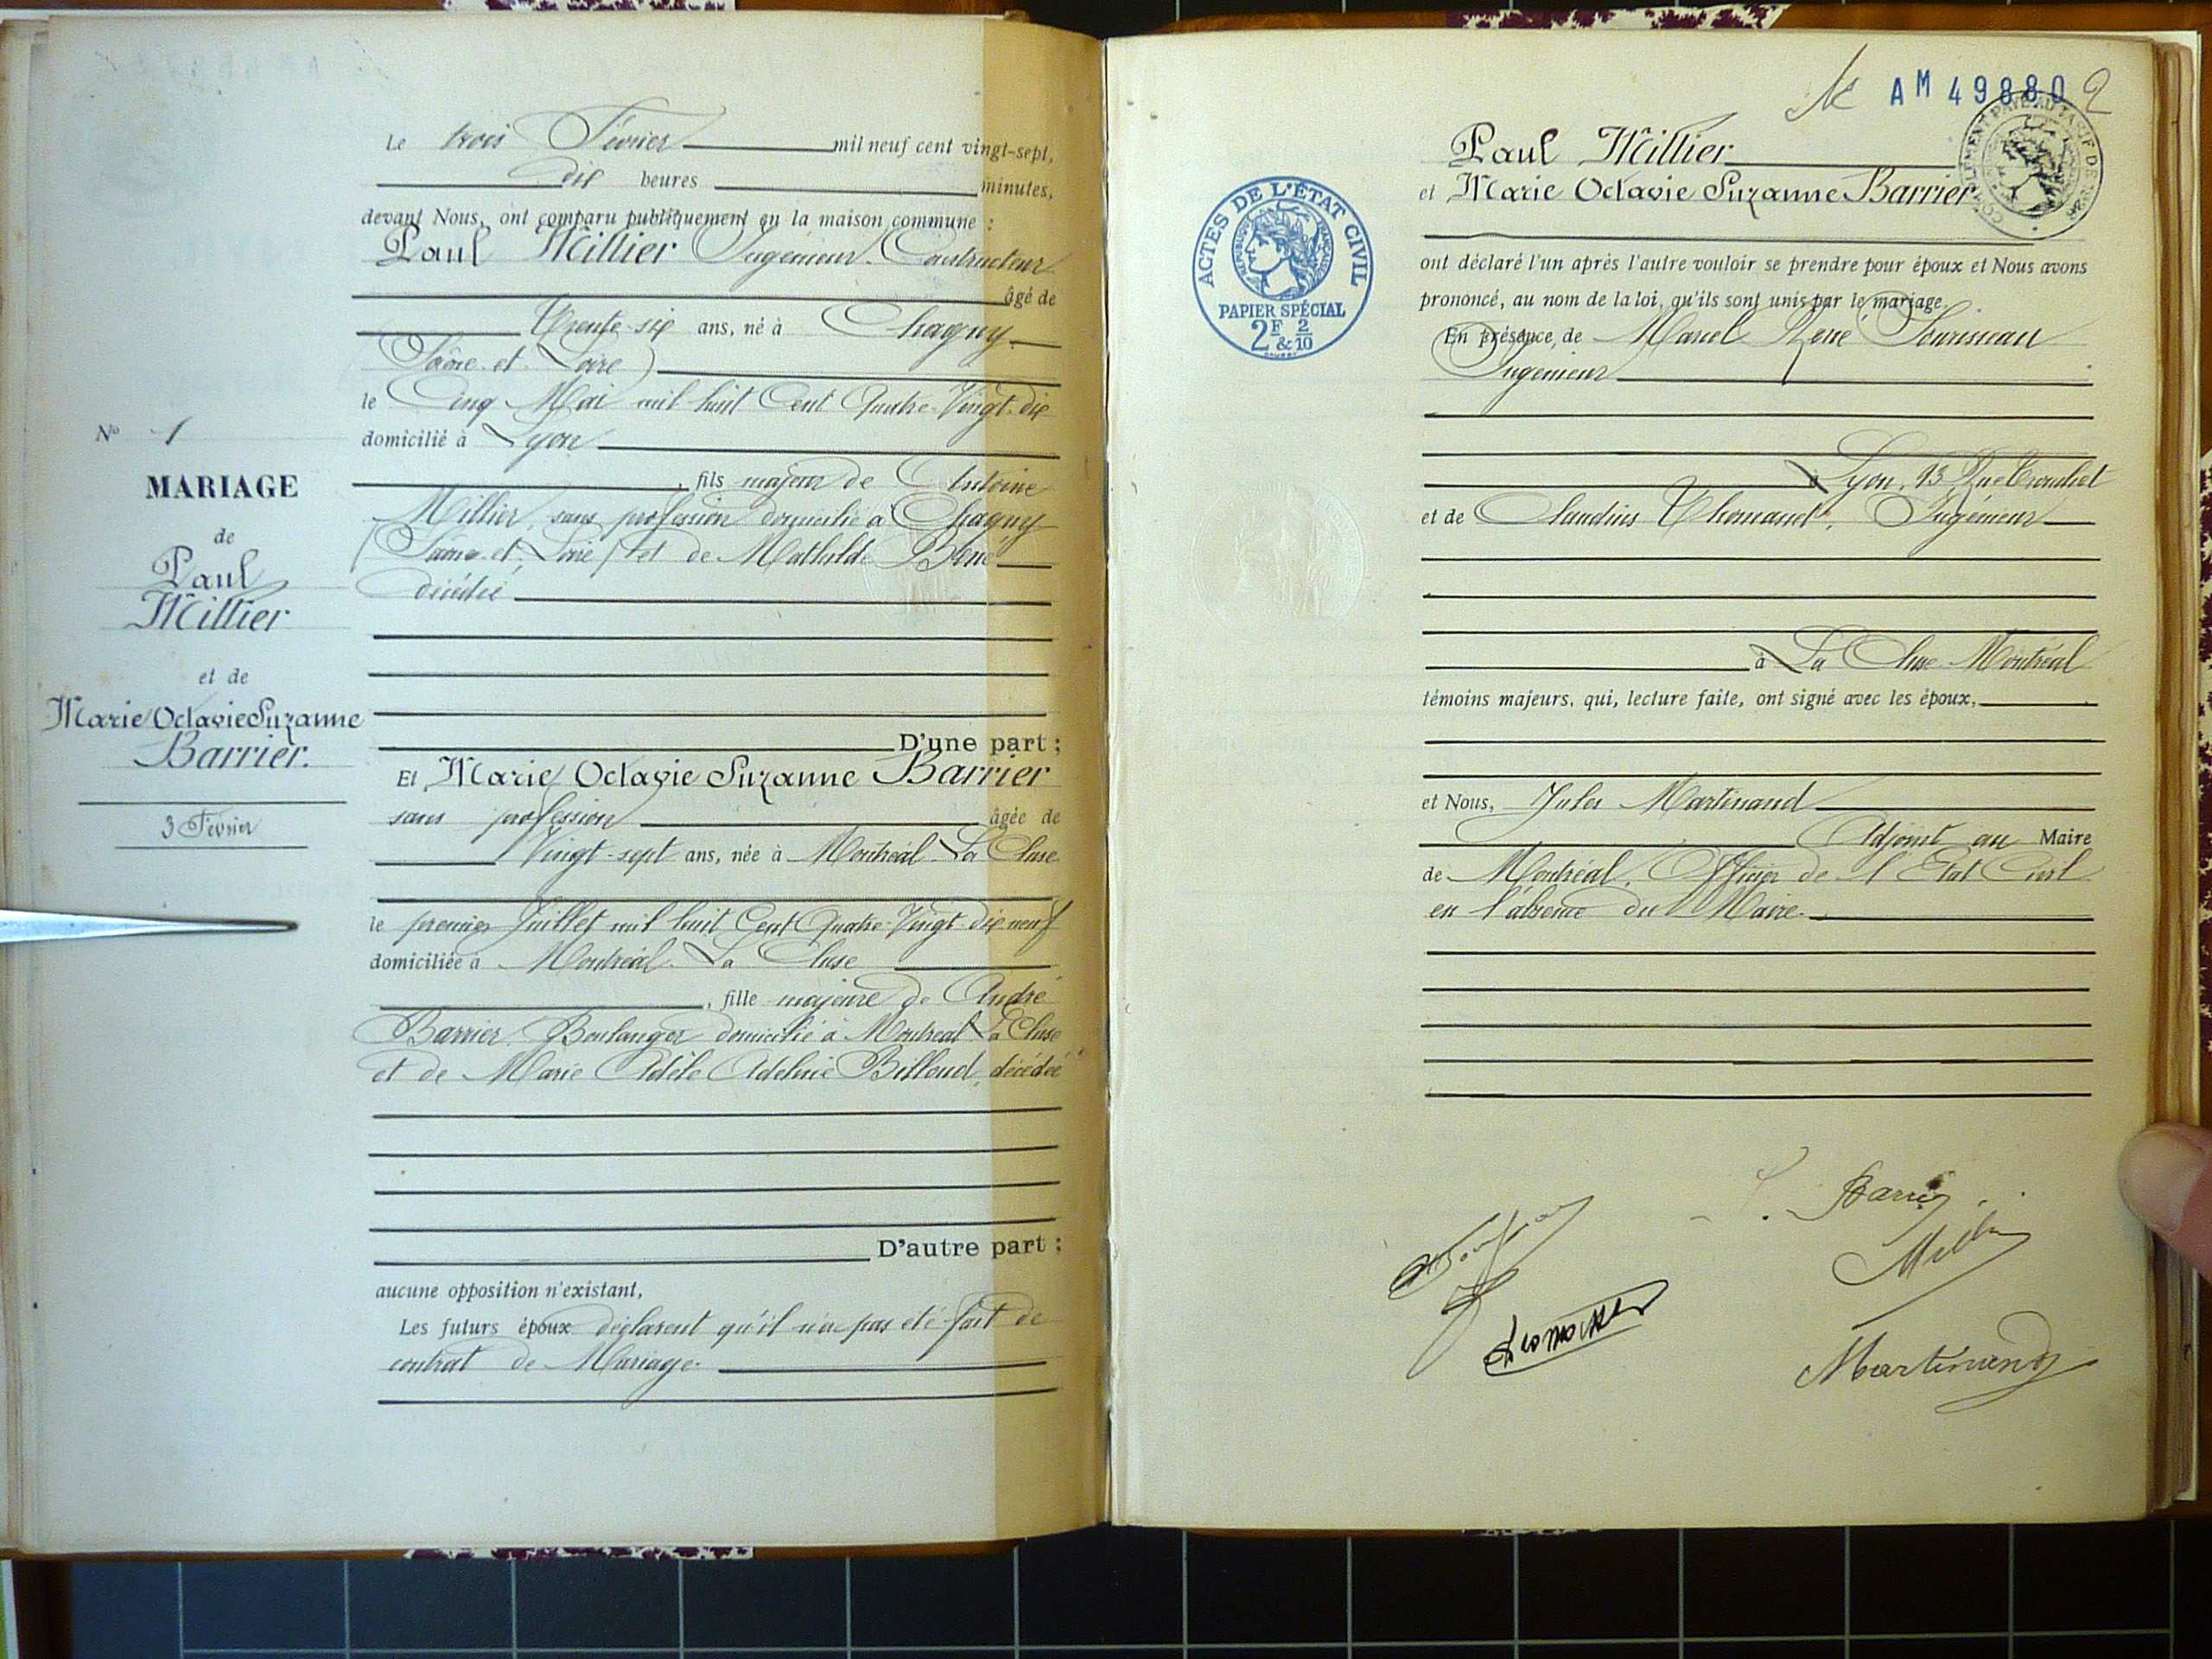 Le trois Février mil neuf cent vingt-sept,
dix heures minutes,
devant Nous, ont comparu publiquement en la maison commune :
Paul Millier Ingénieur-Constructeur
âgé de
Trente-six ans, né à Chagny
Saône-et-Loire)
le Cinq Mai mil huit Cent Quatre-Vingt-dix
domicilié à Lyon
, fils majeur de Antoine
Millier, sans profession domicilié à Chagny
(Saône-et-Loire) et de Mathilde
décédée
D'une part ;
Et Marie Octavie Suzanne Barrier
sans profession âgée de
Vingt-sept ans, née à Montréal-La Cluse
le premier Juillet mil huit Cent Quatre-Vingt-dix neuf
domiciliée à Montréal-La Cluse
, fille majeure de André
Barrier, Boulanger domicilié à Montréal La Cluse
et de Marie Adèle Adeline Billoud, décédée
D'autre part ;
aucune opposition n'existant,
Les futurs époux déclarent qu'il n'a pas été fait de
contrat de Mariage.
No 1
MARIAGE
de
Paul
Millier
et de
Marie Octavie Suzanne
Barrier.
3 Février
AM 49880 2
Paul Millier
et Marie Octavie Suzanne Barrier
ACTES DE L'ÉTAT CIVIL
RÉPUBLIQUE FRANÇAISE
PAPIER SPÉCIAL
2F & 2/10
ont déclaré l'un après l'autre vouloir se prendre pour époux et Nous avons
prononcé, au nom de la loi, qu'ils sont unis par le mariage.
En présence de Marcel René
Ingénieur
à Lyon, 13, Rue
et de Claudius Thomand, Ingénieur
à La Cluse-Montréal
témoins majeurs, qui, lecture faite, ont signé avec les époux,
et Nous, Jules Martinand
Adjoint au Maire
de Montréal, Officier de l'Etat Civil
en l'absence du Maire.
S. Barrier
Millier
Martinand